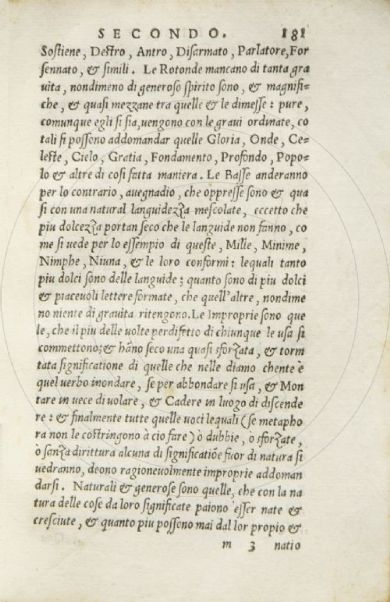 SECONDO. 181
Sostiene, Destro, Antro, Disarmato, Parlatore, For
sennato, & simili. Le Rotonde mancano di tanta gra
uita, nondimeno di generoso spirito sono, & magnifi=
che, & quasi mezzane tra quelle & le dimesse: pure,
comunque egli si sia, uengono con le graui ordinate, co
tali si possono addomandar quelle Gloria, Onde, Ce=
leste, Cielo, Gratia, Fondamento, Profondo, Popo=
lo & altre di cosi fatta maniera. Le Basse anderanno
per lo contrario, auegnadio, che oppresse sono & qua
si con una natural languidezza mescolate, eccetto che
piu dolcezza portan seco che le languide non fanno, co
me si uede per lo essempio di queste, Milie, Minime,
Nimphe, Niuna, & le loro conformi: lequali tanto
piu dolci sono delle languide; quanto sono di piu dolci
& piaceuoli lettere formate, che quell'altre, nondime
no niente di grauita ritengono. Le Improprie sono que
le, che il piu delle uolte per difetto di chiunque le usa si
commettono; & hāno seco una quasi sforzata, & torm
tata significatione di quelle che nelle diamo chente è
quel uerbo inondare, se per abbondare si usa, & Mon
tare in uece di uolare, & Cadere in luogo di discende
re: & finalmente tutte quelle uoci lequali (se metapho
ra non le costringono à cio fare) ò dubbie, ò sforzate,
ò sanza dirittura alcuna di significatiōe fuor di natura si
uedranno, deono ragioneuolmente improprie addoman
darsi. Naturali & generose sono quelle, che con la na
tura delle cose da loro significate paiono esser nate &
cresciute, & quanto piu possono mai dal lor propio &
m 3 natio